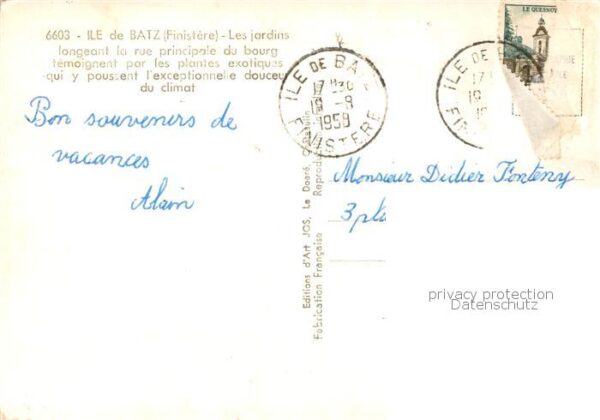 6603 - ILE de BATZ (Finistère) - Les jardins
longeant la rue principale du bourg
témoignent par les plantes exotiques
qui y poussent l'exceptionnelle douceur
du climat
Bon souvenirs de
vacances
Alain
ILE DE BA
17 H30
19 -8
1959
FINISTERE
ILE DE B
17
19
19
FIN
LE QUESNOY
Monsieur Didier Fonteny
3 pla
Editions d'Art JOS, Le Doaré, Châteaulin
Reprod
Fabrication Française
privacy protection
DELCAMPE.NET